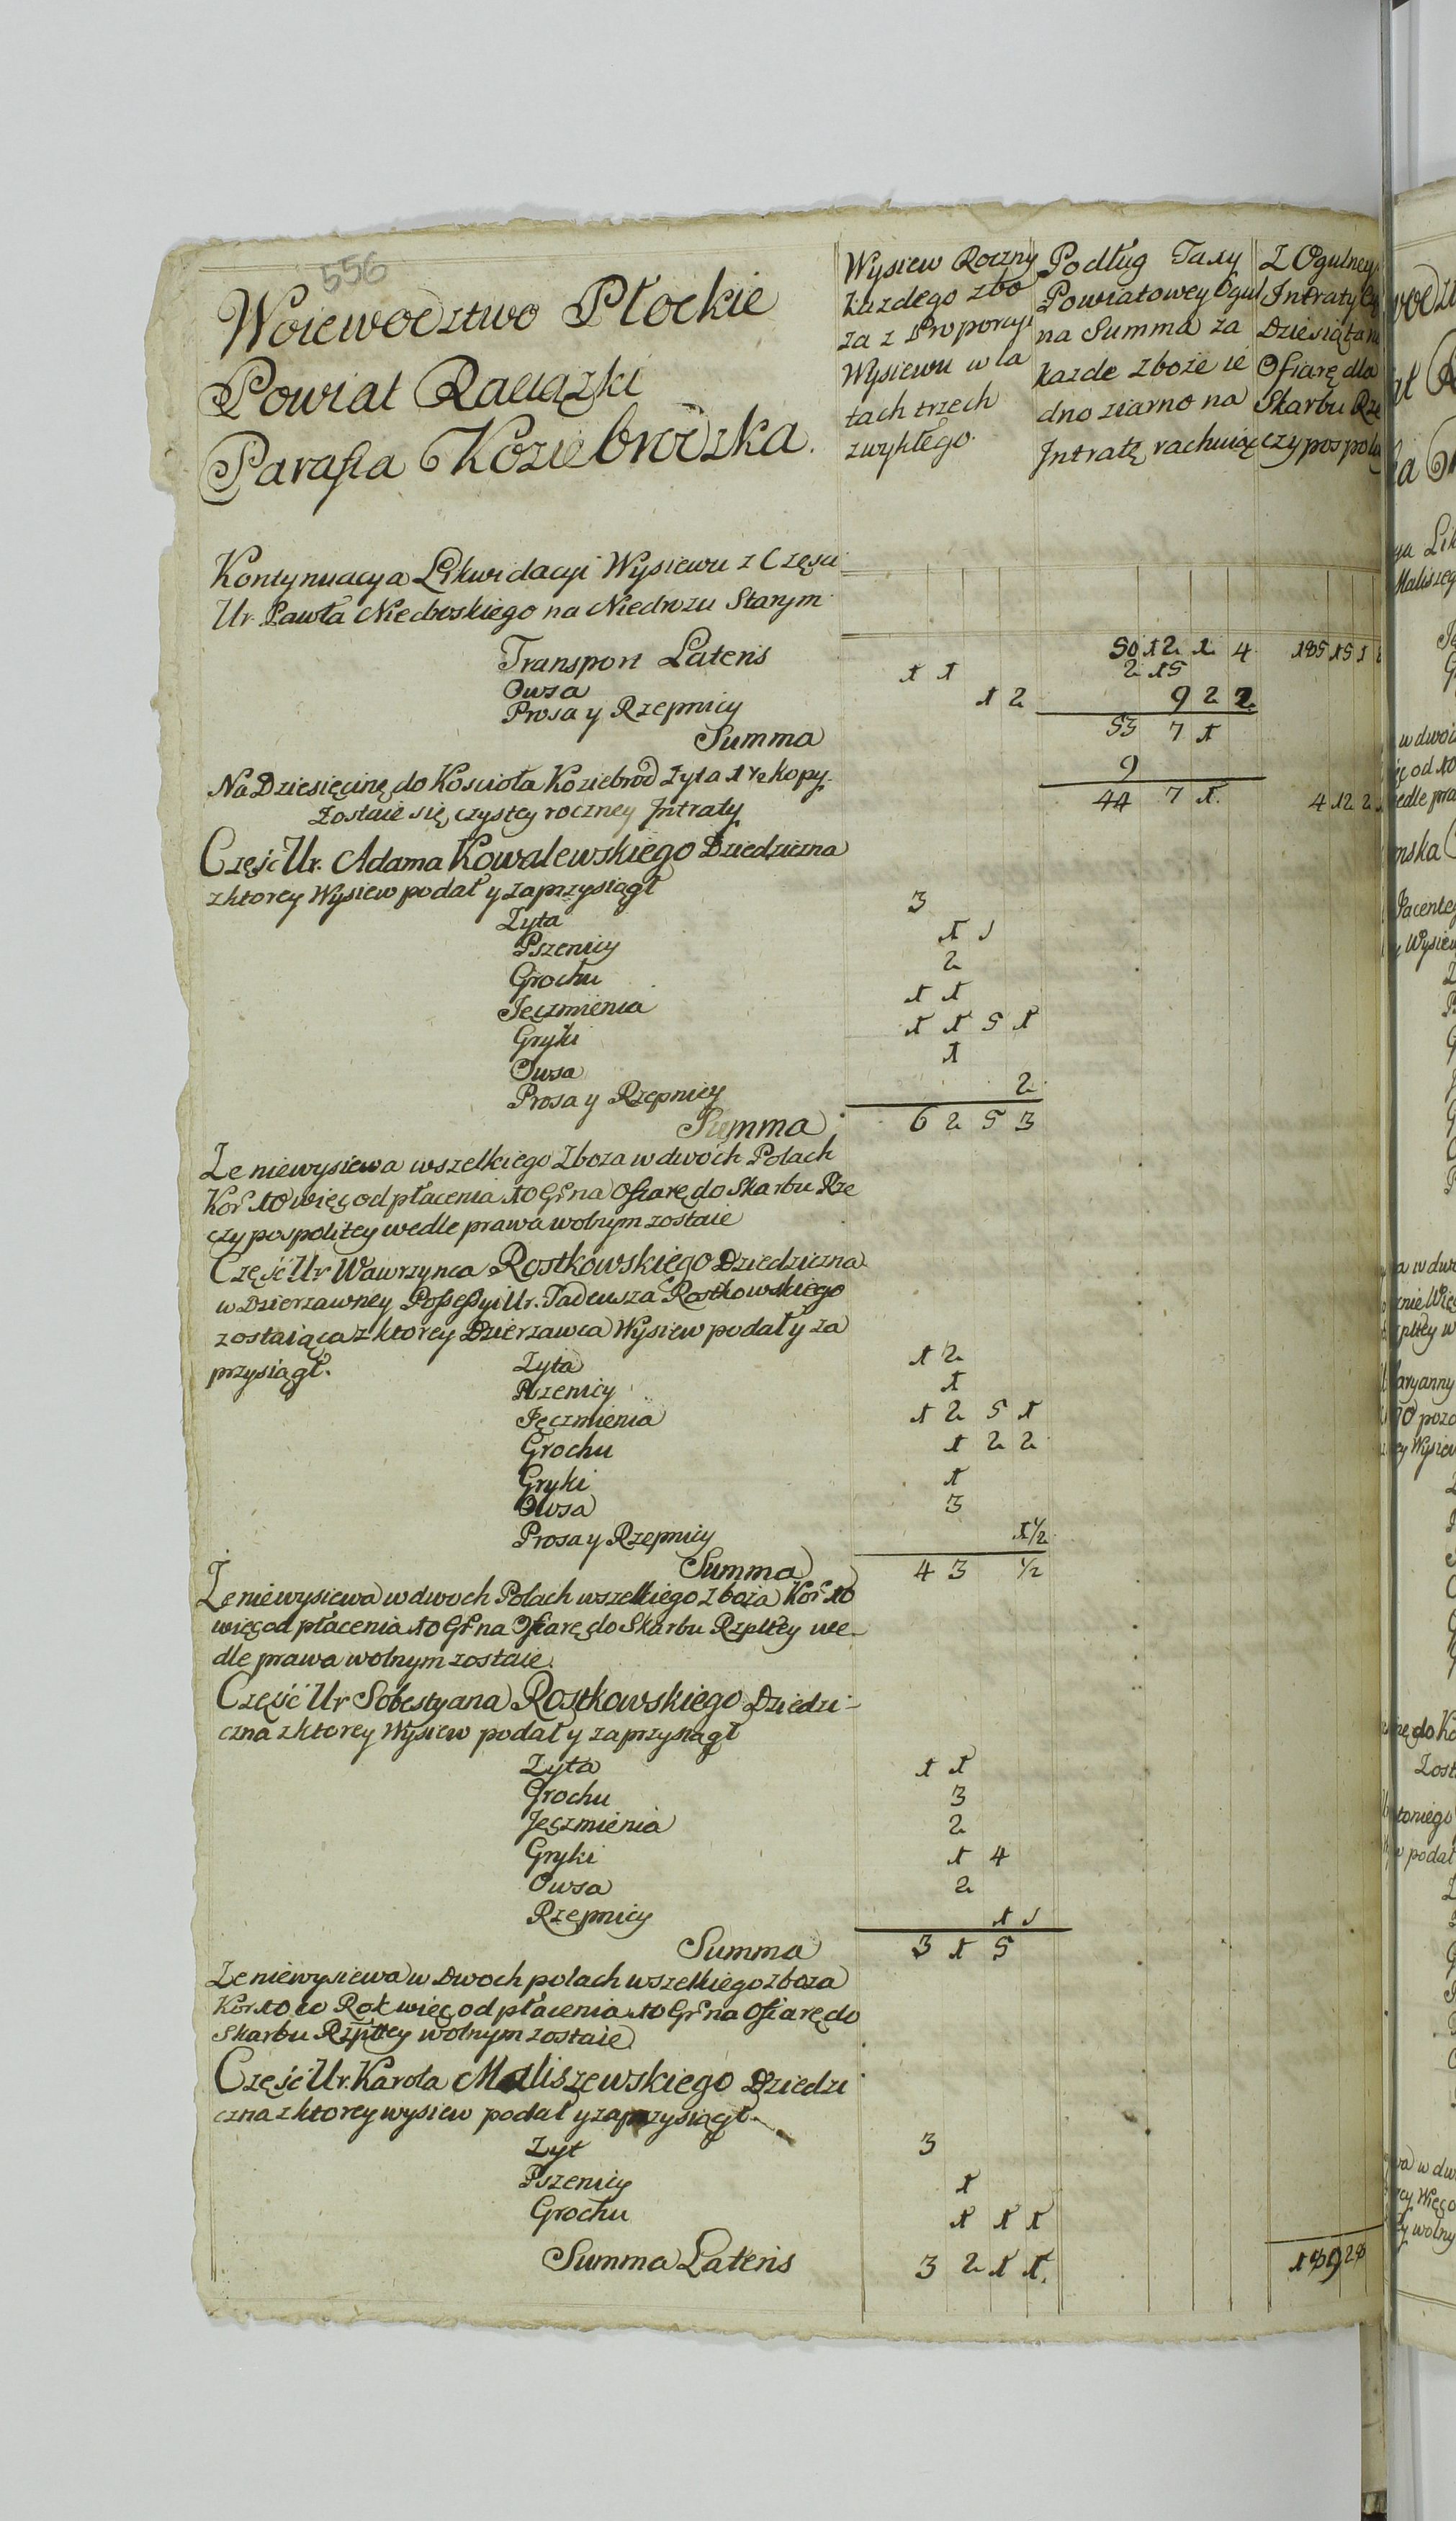 556
Woiewodztwo Płockie
Powiat Raciązki
Parafia Koziebrodzka.
Wysiew Roczny
kazdego zbo
za z Proporcyi
Wysiewu w la
tach trzech
zwykłego.
Podług Taxy
Powiatowey Ogul
na Summa za
kazde zboże ie
dno ziarno na
Intratę rachuiąc
Z Ogulney
Intraty
Dziesiąta
Ofiarę dla
Skarbu Rze
czypospoli
Kontynuacya Likwidacyi Wysiewu z Częsci
Ur. Pawła Niedroskiego na Niedrozu Starym
Transport Lateris 50 12 1 4 185 15 1
Owsa 1 1 2 15
Prosa y Rzepnicy 1 2 9 2 2
Summa 53 7 1
Na Dziesięcinę do Koscioła Koziebrod Zyta 1 1/2 kopy. 9
Zostaie się czystey roczney Intraty 44 7 1. 4 12 2
Część Ur. Adama Kowalewskiego Dziedziczna
z ktorey Wysiew podał y zaprzysiągł
Zyta 3
Pszenicy 1 1
Grochu 2
Jęczmienia 1 1
Gryki 1 1 5 1
Owsa 1
Prosa y Rzepnicy 2
Summa 6 2 5 3
Ze niewysiewa wszelkiego Zboza w dwoch Polach
Kor 10 więc od płacenia 10 Gr na Ofiarę do Skarbu Rze
czypospolitey wedle prawa wolnym zostaie
Część Ur Wawrzynca Rostkowskiego Dziedziczna
w Dzierzawney Possessyi Ur. Tadeusza Rostkowskiego
zostaiąca z ktorey Dzierzawca Wysiew podał y za
przysiągł.
Zyta 1 2
Pszenicy 1
Jęczmienia 1 2 5 1
Grochu 1 2 2
Gryki 1
Owsa 3
Prosa y Rzepnicy 1 1/2
Summa 4 3 1/2
Ze niewysiewa w dwoch Polach wszelkiego Zboża Kor 10
więc od płacenia 10 Gr na Ofiarę do Skarbu Rzpltey we
dle prawa wolnym zostaie.
Część Ur Sobestyana Rostkowskiego Dziedzi-
czna z ktorey Wysiew podał y zaprzysiągł
Zyta 1 1
Grochu 3
Jęczmienia 2
Gryki 1 4
Owsa 2
Rzepnicy 1 1
Summa 3 1 5
Ze niewysiewa w Dwoch polach wszelkiego zboza
Kor 10 co Rok więc od płacenia 10 Gr na Ofiarę do
Skarbu Rzpltey wolnym zostaie
Część Ur. Karola Maliszewskiego Dziedzi
czna z ktorey wysiew podał y zaprzysiągł.
Zyt 3
Pszenicy 1
Grochu 1 1 1
Summa Lateris 3 2 1 1. 189 28